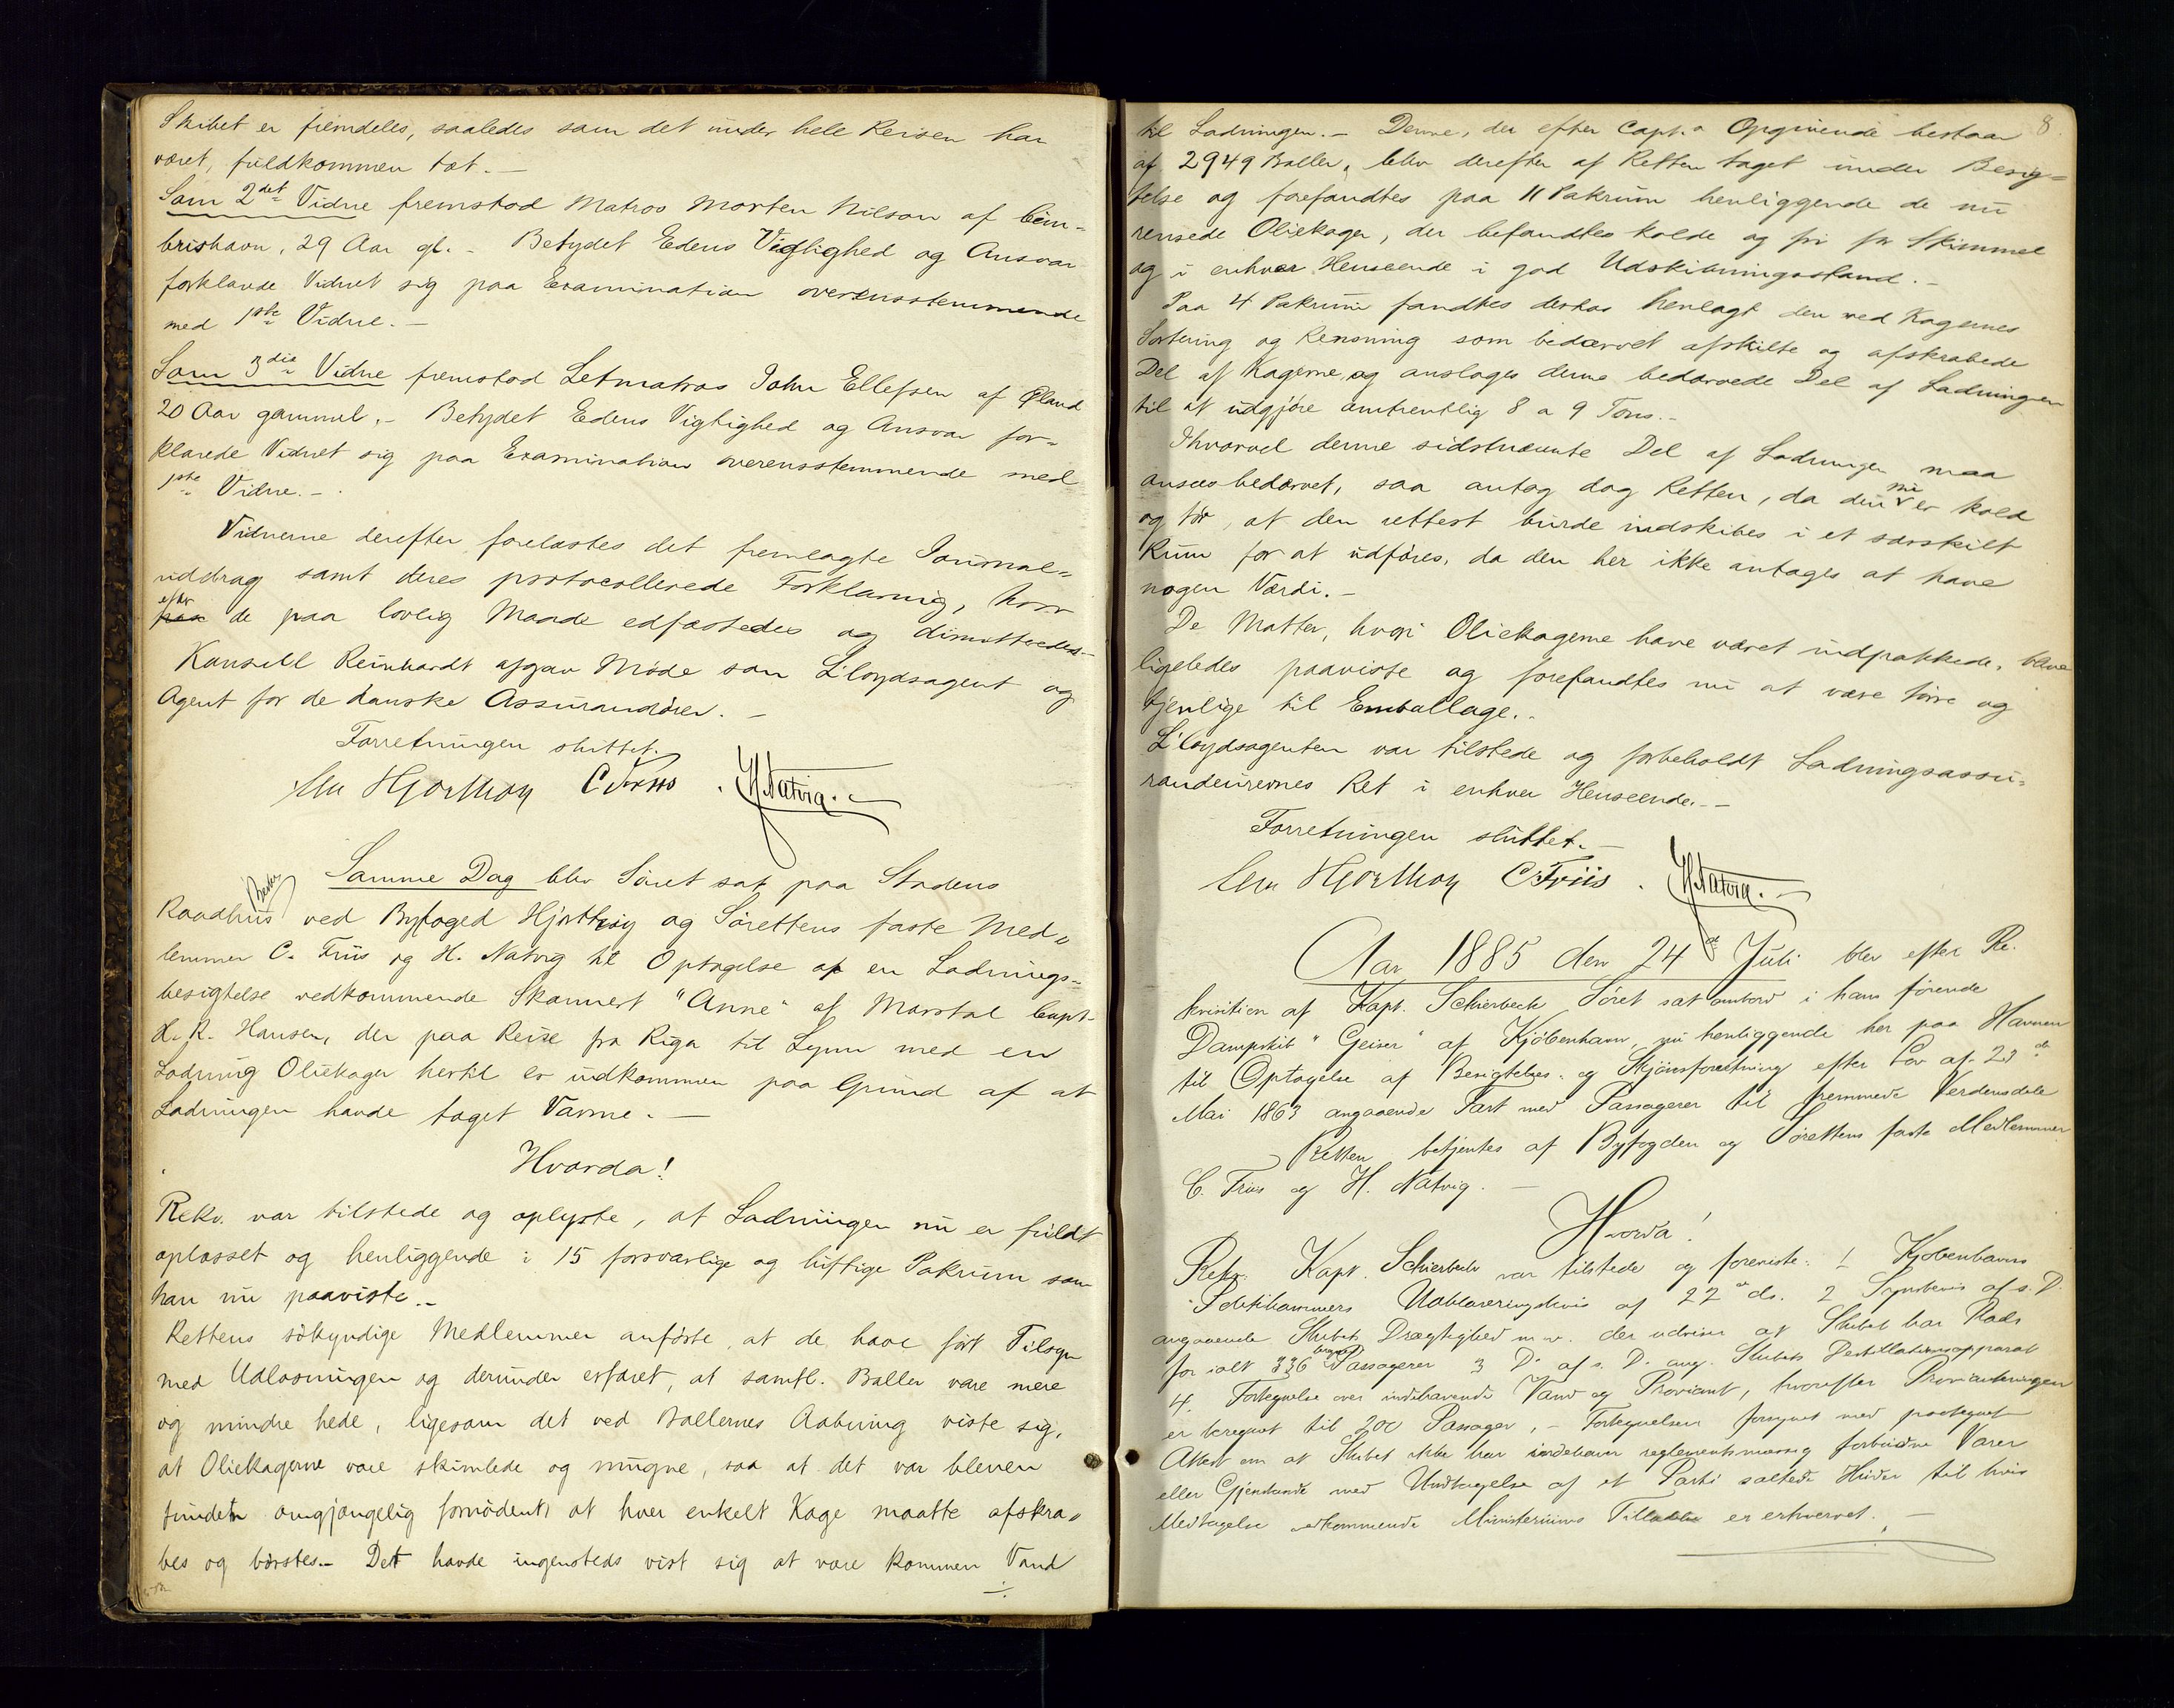 Skibet er fremdeles, saaledes som det under hele Reisen har
været, fuldkommen tæt. —
Som 2det Vidne fremstod Matros Morten Nilson af Cim-
brishavn, 29 Aar gl. - Betydet Edens Vigtighed og Ansvar
forklarede Vidnet sig paa Examination overensstemmende
med 1ste Vidne. —
Som 3die Vidne fremstod Letmatros John Ellefsen af Øland
20 Aar gammel. - Betydet Edens Vigtighed og Ansvar for-
klarede Vidnet sig paa Examination overensstemmende med
1ste Vidne. -
Vidnerne derefter forelæstes det fremlagte Journal-
uddrag samt deres protocollerede Forklaring, hvor
efter de paa lovlig Maade edfæstedes og dimitteredes. -
Konsul Reinhardt afgav Møde som Lloydsagent og
Agent for de danske Assurandører. —
Forretningen sluttet.
Hjorthøy C Friis . H. Natvig. —
Samme Dag blev Søret sat paa Stadens
Raadhus ved Byfoged Hjorthøy og Sørettens faste Med-
lemmer C. Friis og H. Natvig til Optagelse af en Ladnings-
besigtelse vedkommende Skonnert "Anne" af Marstal Capt.
H. R. Hansen, der paa Reise fra Riga til Lynn med en
Ladning Oliekager hertil er indkommen paa Grund af at
Ladningen havde taget Varme. —
Hvorda!
Rekv. var tilstede og oplyste, at Ladningen nu er fuldt
oplosset og henliggende i 15 forsvarlige og luftige Pakrum som
han nu paaviste. -
Rettens sökyndige Medlemmer anførte, at de have ført Tilsyn
med Udlosningen og derunder erfaret, at samtl. Baller vare mere
og mindre hede, ligesom det ved Ballernes Aabning viste sig,
at Oliekagerne vare skimlede og mugne, saa at det var bleven
fundet omgjængelig fornødent at hver enkelt Kage maatte afskra-
bes og børstes. - Det havde ingensteds vist sig at være kommen Vand
8.
til Ladningen. - Denne, der efter Capt.s Opgivende bestaar
af 2949 Baller, blev derefter af Retten taget under Besig-
telse og forefandtes paa 11 Pakrum henliggende de nu
rensede Oliekager, der befandtes kolde og fri for Skimmel
og i enhver Henseende i god Udskibningsstand. -
Paa 4 Pakrum fandtes derhos henlagt den ved Kagernes
Sortering og Rensning som bedærvet afskilte og afskrabede
Del af Kagerne, og ansloges denne bedærvede Del af Ladningen
til at udgjøre omtrentlig 8 a 9 Tons. -
Ihvorvel denne sidstnævnte Del af Ladningen maa
ansees bedærvet, saa antog dog Retten, da den nu er kold
og tör, at den rettest burde indskibes i et særskilt
Rum for at udføres, da den her ikke antages at have
nogen Værdi. -
De Matter, hvori Oliekagerne have været indpakkede, bleve
ligeledes paaviste og forefandtes nu at være tørre og
tjenlige til Emballage. -
Lloydsagenten var tilstede og forbeholdt Ladningsassu-
randeurernes Ret i enhver Henseende. -
Forretningen sluttet. —
Hjorthøy C Friis . H. Natvig. —
Aar 1885 den 24de Juli blev efter Re-
kvisition af Kapt. Schierbeck Søret sat ombord i hans førende
Dampskib "Geiser" af Kjøbenhavn, nu henliggende her paa Havnen
til Optagelse af Besigtelses- og Skjønsforretning efter Lov af 23de
Mai 1863 angaaende Fart med Passagerer til fremmede Verdensdele
Retten betjentes af Byfogden og Sørettens faste Medlemmer
C. Friis og H. Natvig. —
Hvorda!
Rekv. Kapt. Schierbeck var tilstede og foreviste: 1 Kjøbenhavns
Toldkammers Udklareringsbevis af 22de ds. 2 Synsbevis af s. D.
angaaende Skibets Drægtighed m. v. der udviser at Skibet har Plads
for ialt 336 Passagerer 3 Do af s. D. ang. Skibets Destillationsapparat
4. Fortegnelse over indehavende Vand og Proviant, hvorefter Provianteringen
er beregnet til 200 Passager, - Fortegnelsen forsynet med paategnet
Attest om at Skibet ikke har indehavn reglementsmæssig forbudne Varer
eller Gjenstande med Undtagelse af et Parti saltede Huder til hvis
Medtagelse vedkommende Ministeriums Tilladelse er erhvervet. —